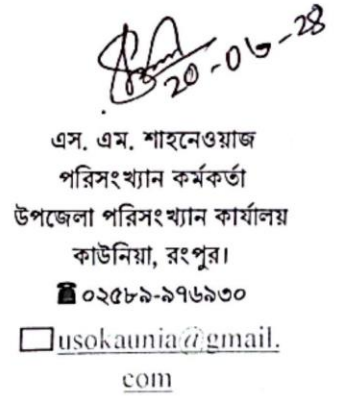 ২০-০৬-২৪
এস. এম. শাহনেওয়াজ
পরিসংখ্যান কর্মকর্তা
উপজেলা পরিসংখ্যান কার্যালয়
কাউনিয়া, রংপুর।
☎০২৫৮৯-৯৭৬৯৩০
usokaunia@gmail.
com